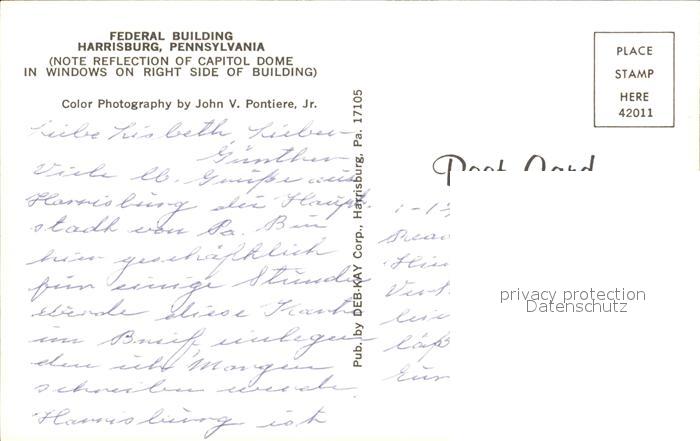 FEDERAL BUILDING
HARRISBURG, PENNSYLVANIA
(NOTE REFLECTION OF CAPITOL DOME
IN WINDOWS ON RIGHT SIDE OF BUILDING)
Color Photography by John V. Pontiere, Jr.
Liebe Lisbeth, Lieber
Günther
Viele lb. Grüße aus
Harrisburg der Haupt-
stadt von Pa. Bin
hier geschäftlich
für einige Stunden
werde diese Karte
im Brief einlegen
den ich Morgen
schreiben werde.
Harrisburg ist
Pub. by DEB-KAY Corp., Harrisburg, Pa. 17105
PLACE
STAMP
HERE
42011
Post Card
privacy protection
Datenschutz